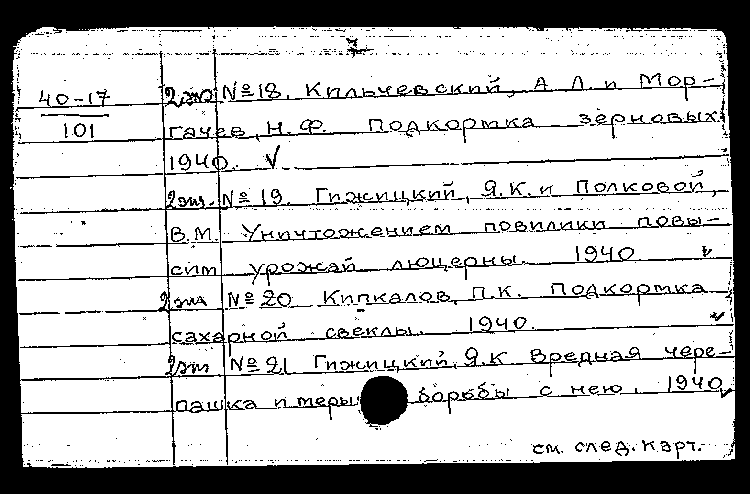 7
40-17
101
2 экз № 18. Кильчевский, А Л. и Мор-
гачев, Н.Ф. Подкормка зерновых
1940. ✓
2 экз. № 19. Гижицкий, Я.К. и Полковой,
В.М. Уничтожением повилики повы-
сим урожай люцерны. 1940 ✓
2 экз № 20 Кипкалов, П.К. Подкормка
сахарной свеклы. 1940. ✓
2 экз № 21 Гижицкий, Я.К Вредная чере-
пашка и меры борьбы с нею. 1940 ✓
см. след. карт.